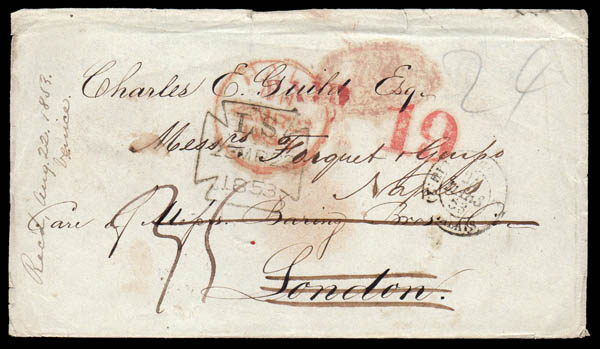 Charles E. Guild Esq.
24
19
L.S
1853
Messrs Forquet & Giusso
Naples
Care of Messrs Baring Bros & Co
London.
Recd. Aug. 22. 1853.
Venice.